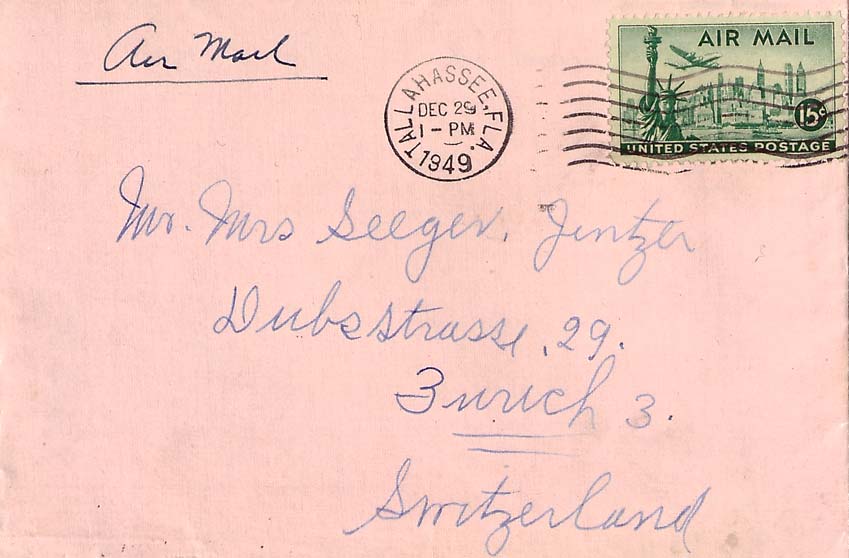 Air Mail
AIR MAIL
15¢
UNITED STATES POSTAGE
TALLAHASSEE, FLA.
DEC 29
1 - PM
1949
Mr. Mrs Seeger. Jentzer
Dubsstrasse, 29.
Zurich 3.
Switzerland